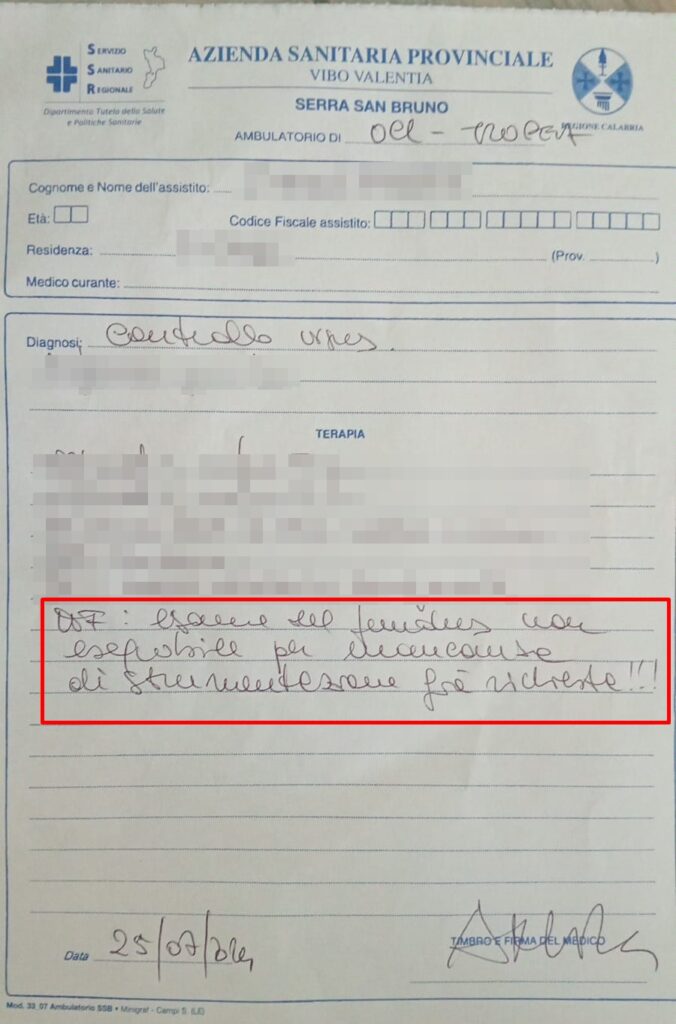 SERVIZIO
SANITARIO
REGIONALE
Dipartimento Tutela della Salute
e Politiche Sanitarie
AZIENDA SANITARIA PROVINCIALE
VIBO VALENTIA
SERRA SAN BRUNO
REGIONE CALABRIA
AMBULATORIO DI OCL - TROPEA
Cognome e Nome dell'assistito:
Età:
Codice Fiscale assistito:
Residenza: (Prov. )
Medico curante:
Diagnosi: Controllo visus.
TERAPIA
: esame del fundus non
eseguibile per mancanza
di strumentazione già richiesta!!!
Data 25/07/24
TIMBRO E FIRMA DEL MEDICO
Mod. 33_07 Ambulatorio SSB • Minigraf - Campi S. (LE)